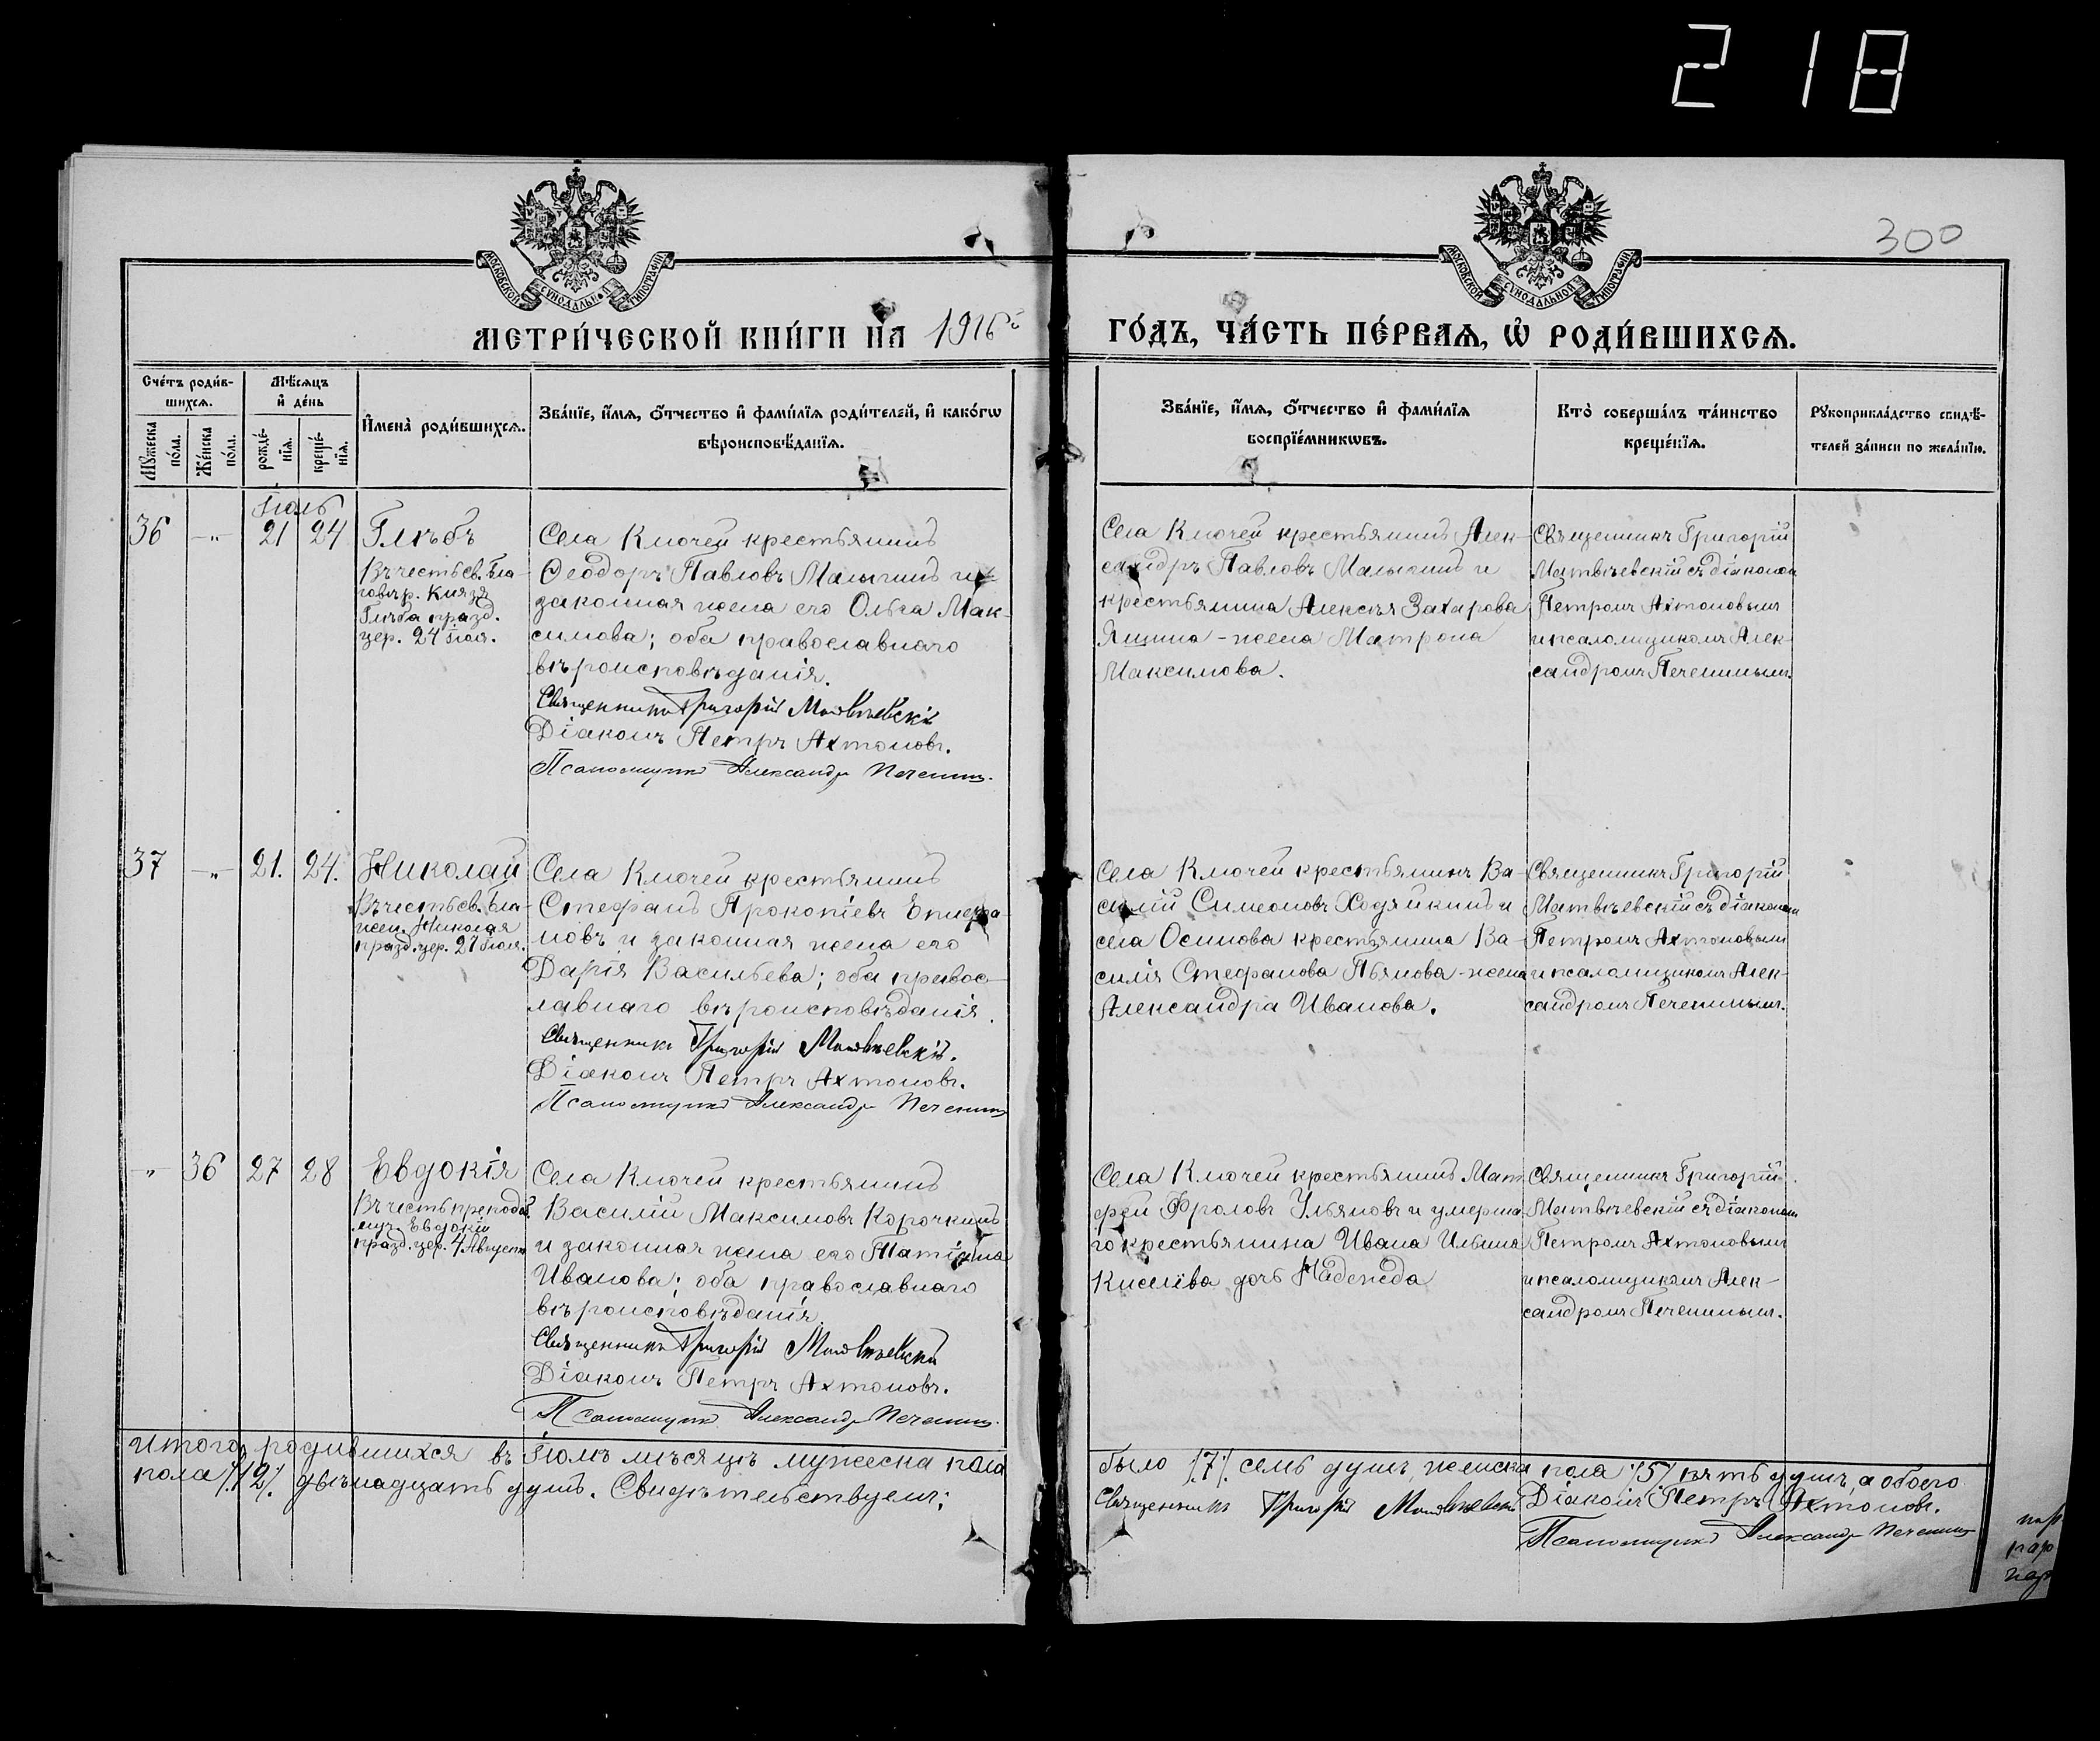 218
300
МОСКОВСКОЙ СѴНОДАЛЬНОЙ ТИПОГРАФІИ
МОСКОВСКОЙ СѴНОДАЛЬНОЙ ТИПОГРАФІИ
МЕТРИ́ЧЕСКОЙ КНИ́ГИ НА 1916й
ГО́ДЪ, ЧА́СТЬ ПЕ́РВАѦ, Ѽ РОДИ́ВШИХСѦ.
Сче́тъ роди́в-
шихсѧ.
Мѣ́сѧцъ
и҆ де́нь
Мꙋ́жеска
по́ла.
Же́нска
по́ла.
рожде́-
нїѧ.
креще́-
нїѧ.
И҆мена̀ роди́вшихсѧ.
Зва́нїе, и҆́мѧ, ѻ҆́тчество и҆ фами́лїѧ роди́телей, и҆ како́гѡ
вѣроисповѣ́данїѧ.
Зва́нїе, и҆́мѧ, ѻ҆́тчество и҆ фами́лїѧ
воспрїе́мникѡвъ.
Кто̀ соверша́лъ та́инство
креще́нїѧ.
Рꙋкоприкла́дство свидѣ́-
телей за́писи по жела́нїю.
Іюль
36 -„- 21 24 Глѣбъ
Въ честь св. бла-
говѣр. Князя
Глѣба празд.
цер. 24 Іюля.
Села Ключей крестьянинъ
Ѳеодоръ Павловъ Малыгинъ и
законная жена его Ольга Мак-
симова; оба православнаго
вѣроисповѣданія.
Священникъ Григорій Матвѣевскій
Діаконъ Петръ Ахтоновъ.
Псаломщикъ Александръ Печенинъ.
Села Ключей крестьянинъ Алек-
сандръ Павловъ Малыгинъ и
крестьянина Алексѣя Захарова
Ящина - жена Матрона
Максимова.
Священникъ Григорій
Матвѣевскій съ діакономъ
Петромъ Ахтоновымъ
и псаломщикомъ Алек-
сандромъ Печенинымъ.
37 -„- 21. 24. Николай
Въ честь св. бла-
жен. Николая
празд. цер. 27 Іюля.
Села Ключей крестьянинъ
Стефанъ Прокопіевъ Епифа-
новъ и законная жена его
Дарія Васильева; оба правос-
лавнаго вѣроисповѣданія.
Священникъ Григорій Матвѣевскій.
Діаконъ Петръ Ахтоновъ.
Псаломщикъ Александръ Печенинъ
Села Ключей крестьянинъ Ва-
силій Симеоновъ Ходяйкинъ и
села Осинова крестьянина Ва-
силія Стефанова Пьянова - жена
Александра Иванова.
Священникъ Григорій
Матвѣевскій съ діакономъ
Петромъ Ахтоновымъ
и псаломщикомъ Алек-
сандромъ Печенинымъ.
-„- 36 27 28 Евдокія
Въ честь преподоб.
муч. Евдокіи
празд. цер. 4 Августа
Села Ключей крестьянинъ
Василій Максимовъ Корочкинъ
и законная жена его Татіана
Иванова; оба православнаго
вѣроисповѣданія.
Священникъ Григорій Матвѣевскій
Діаконъ Петръ Ахтоновъ.
Псаломщикъ Александръ Печенинъ.
Села Ключей крестьянинъ Мат-
фей Фроловъ Ульяновъ и умерша-
го крестьянина Ивана Ильина
Киселёва дочь Надежда
Священникъ Григорій
Матвѣевскій съ діакономъ
Петромъ Ахтоновымъ
и псаломщикомъ Алек-
сандромъ Печенинымъ.
Итого родившихся въ Іюлѣ мѣсяцѣ мужеска пола
было /7/. семь душъ, женска пола /5/ пять душъ, а обоего
пола /12/. двѣнадцать душъ. Свидѣтельствуемъ:
Священникъ Григорій Матвѣевскій Діаконъ Петръ Ахтоновъ.
Псаломщикъ Александръ Печенинъ